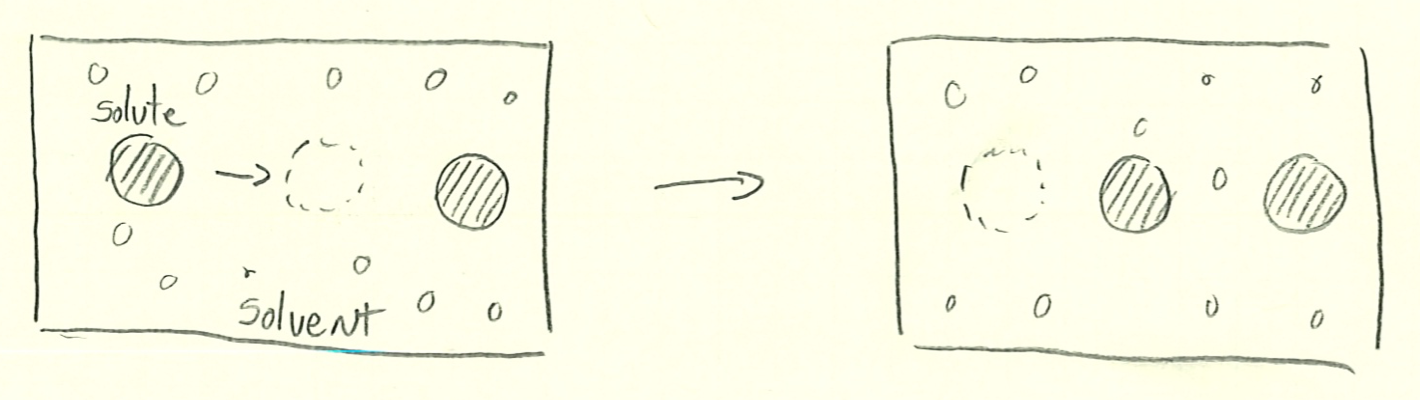 Solute
Solvent